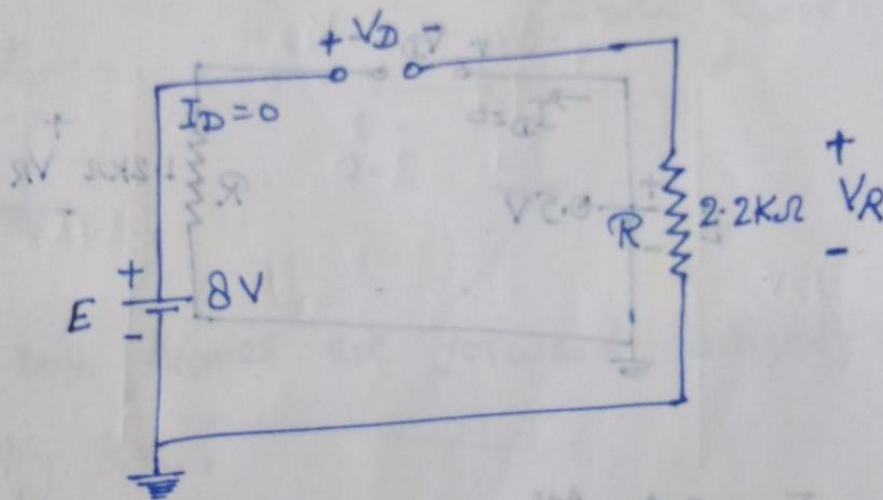 + VD -
ID=0
+
R 2.2KΩ VR
-
+
E 8V
-